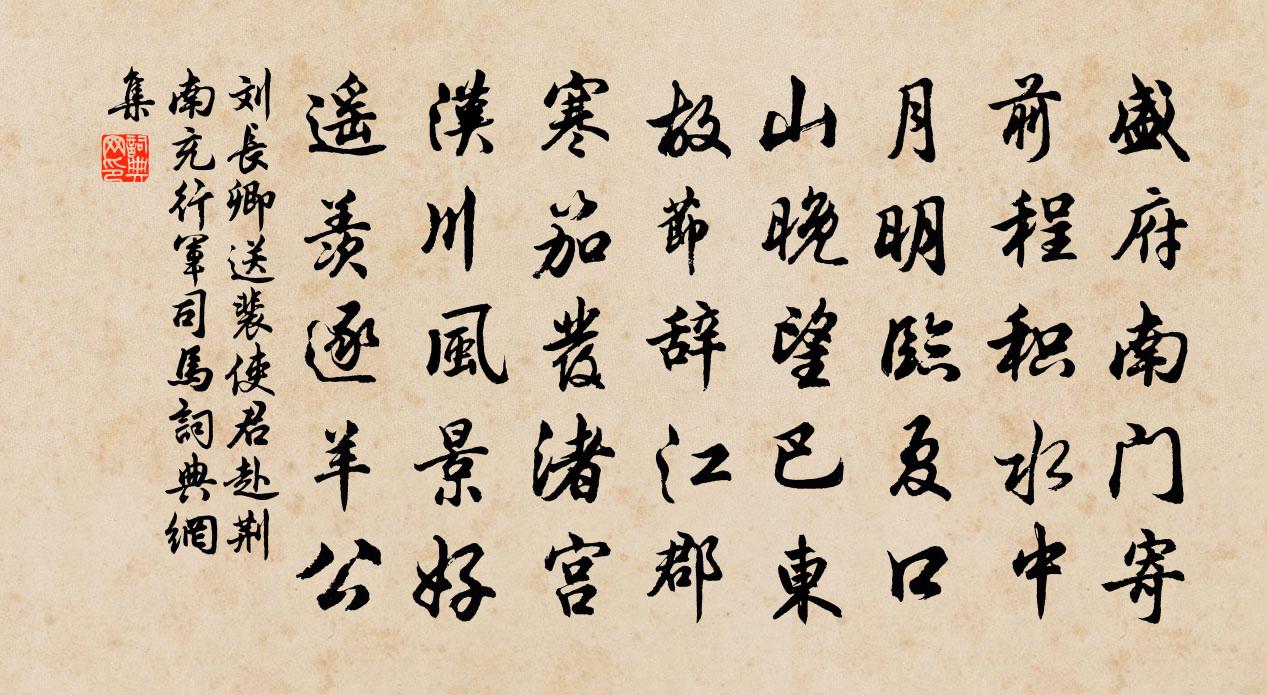 盛府南门寄
前程积水中
月明臨夏口
山晚望巴東
故節辞江郡
寒笳發渚宫
漢川風景好
遥羡逐羊公
刘長卿送裴使君赴荆
南充行軍司馬詞典網
集
詞典
网印